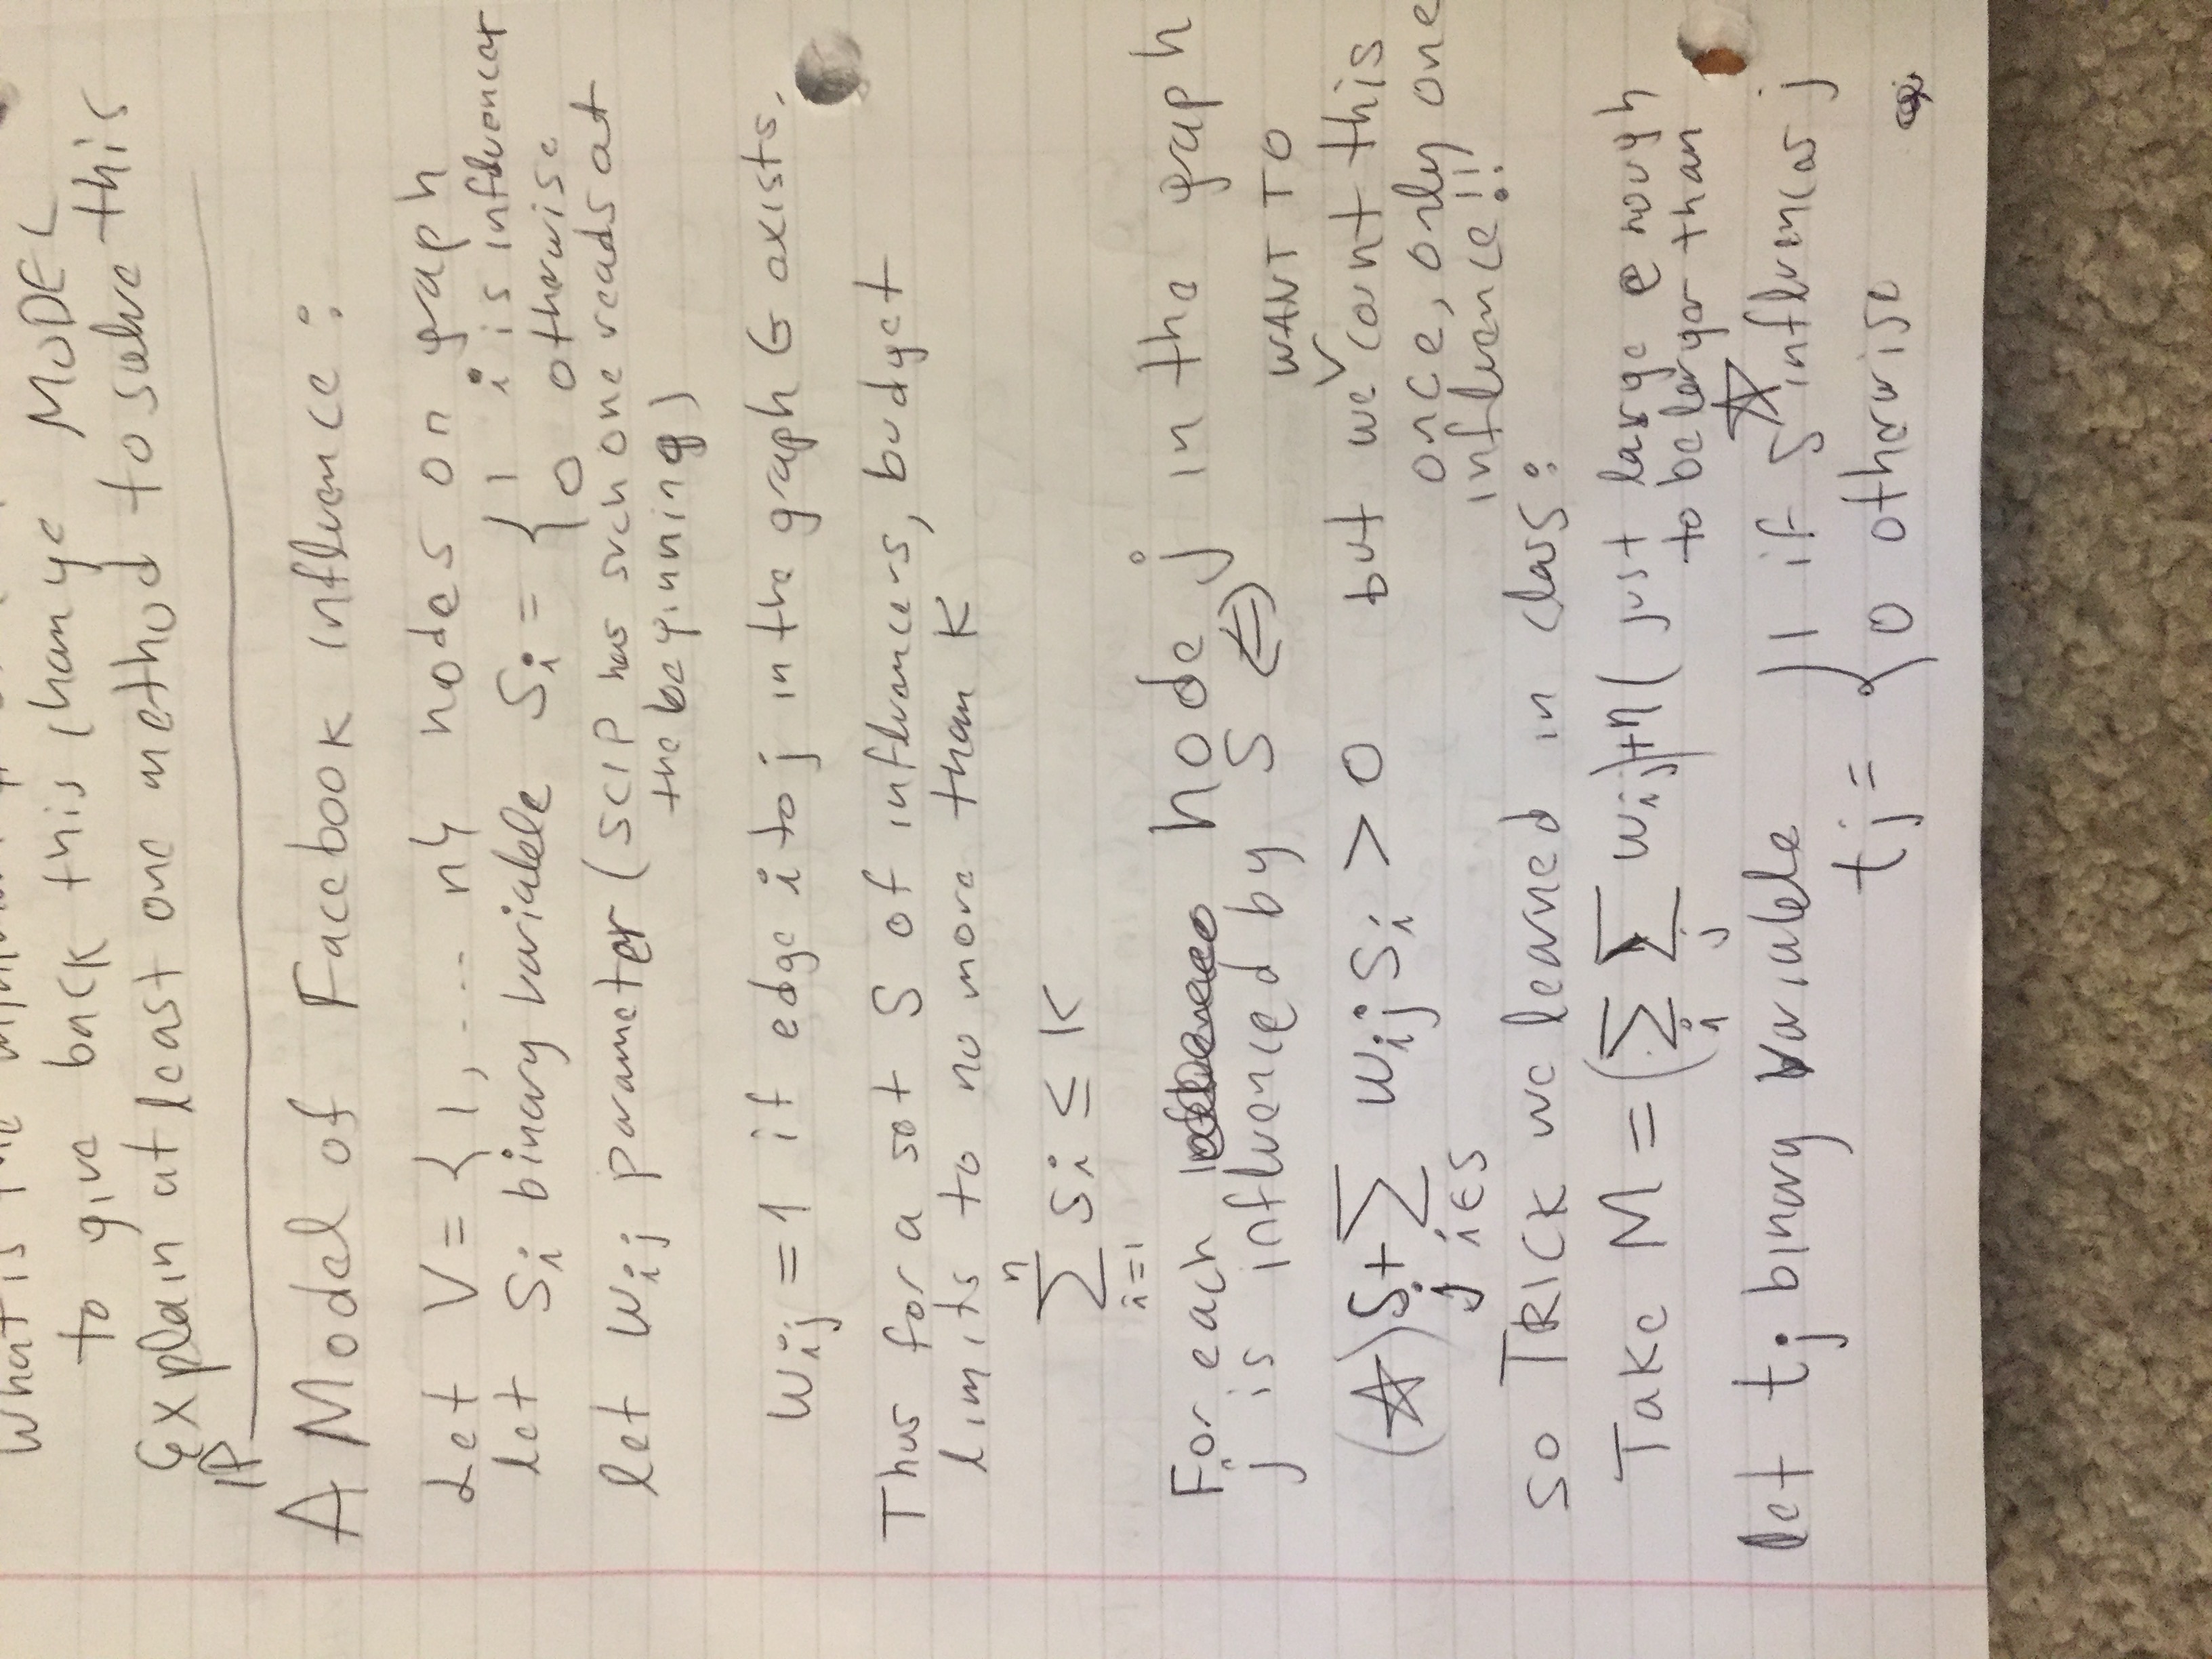 What is the minimum
to give back this change MODEL
Explain at least one method to solve this
IP
A Model of Facebook influence :
Let V = { 1, ... n} nodes on graph
let Si binary variable Si = { 1 i is influencer
0 otherwise
let wij parameter (SCIP has such one reads at
the beginning)
wij = 1 if edge i to j in the graph G exists.
Thus for a set S of influencers, budget
limits to no more than K
n
∑ si ≤ K
i=1
For each node j in the graph
j is influenced by S ⇔
WANT TO
(☆) Sj + ∑ wij si > 0 but we count this
i∈S once, only one
influence!!
so TRICK we learned in class :
Take M = (∑ ∑ wij) + n ( just large enough
i j to be larger than
☆
let tj binary variable { 1 if S influences j
tj = 0 otherwise